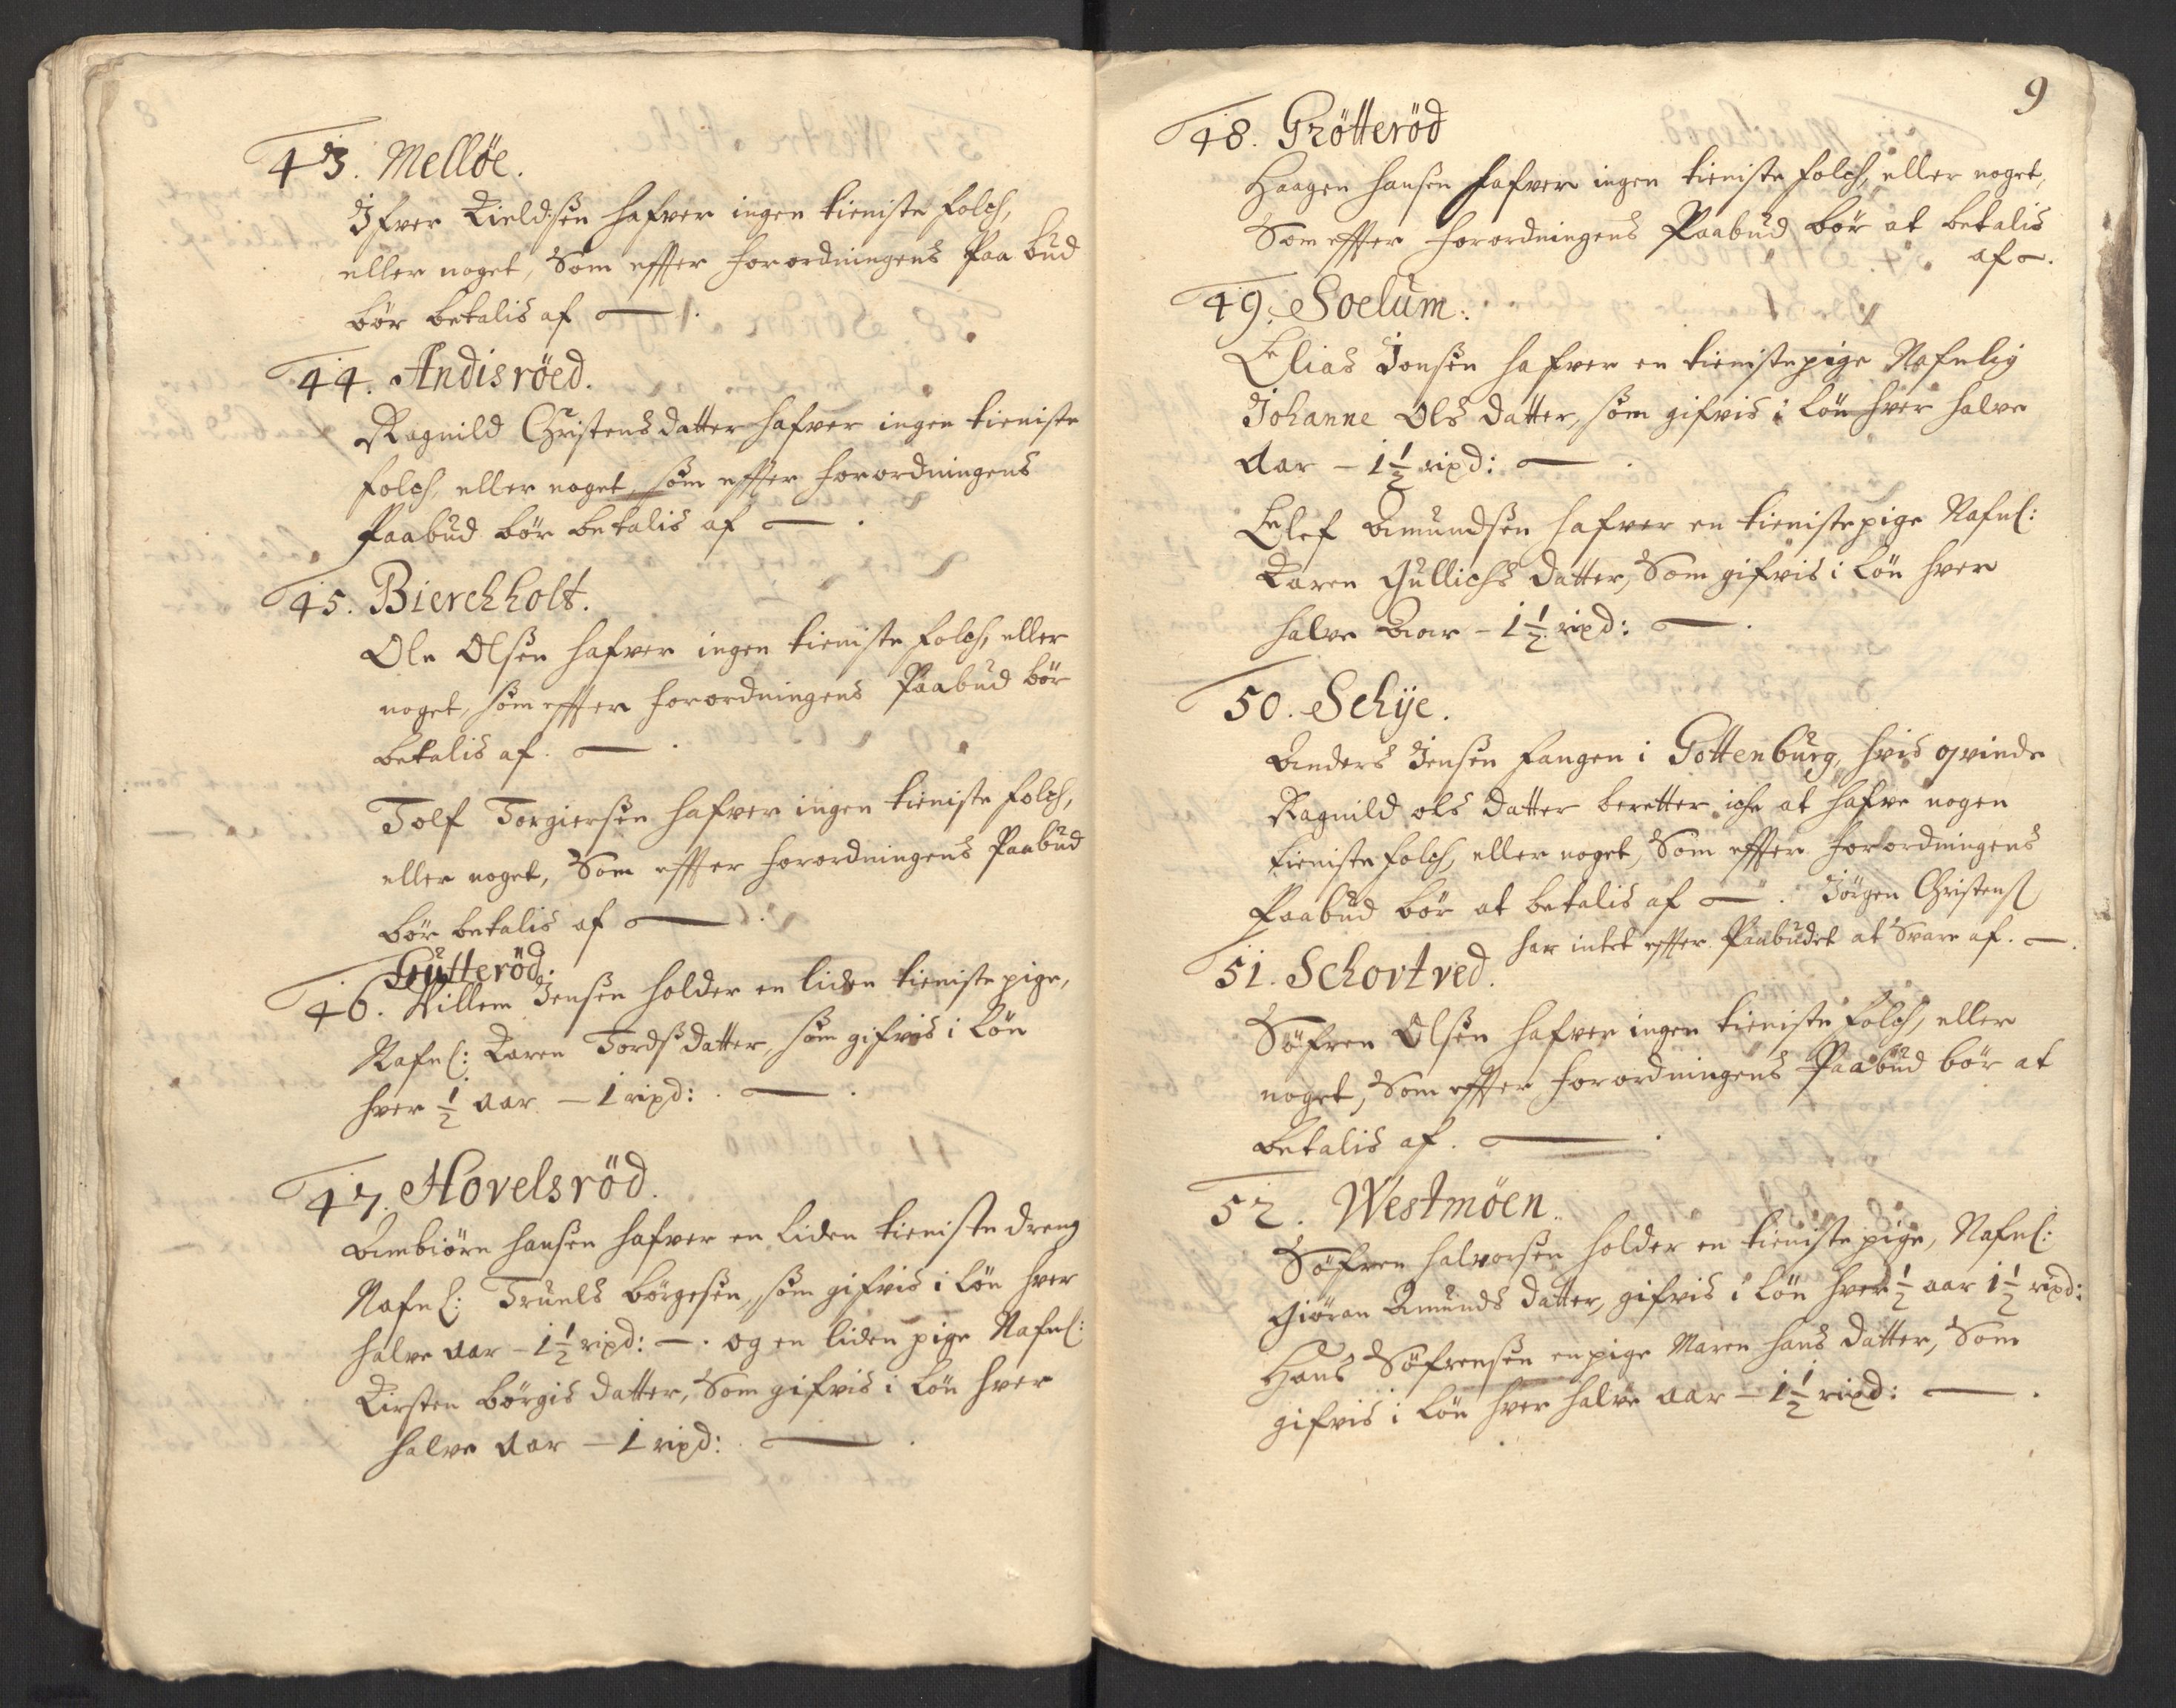 43. Melløe.
Ifver Kieldsen hafver ingen tieniste folch,
eller noget, Som effter forordningens Paabud
bør betalis af —.
44. Andisröed.
Ragnild Christens datter hafver ingen tieniste
folch, eller noget, som effter forordningens
Paabud bör betalis af —.
45. Bierchholt.
Ole Olsen hafver ingen tieniste folch, eller
noget, som effter forordningens Paabud bör
betalis af. —.
Tolf Torgiersen hafver ingen tieniste folch,
eller noget, Som effter forordningens Paabud
bör betalis af —.
Gutteröd.
46. Willem Jensen holder en liden tieniste pige,
Nafnl: Karen Tordsdatter, som gifvis i Lön
hver ½ aar — 1 rixd: —.
47. Hovelsröd.
Ambiörn hansen hafver en liden tieniste dreng
Nafnl: Truels börgesen, som gifvis i Lön hver
halve aar – 1½ rixd: —. og en liden pige Nafnl:
Kirsten börgis datter, Som gifvis i Lön hver
halve aar — 1 rixd: —.
9
48. Grötteröd
Haagen hansen hafver ingen tieniste folch, eller noget,
Som effter forordningens Paabud bör at betalis
af —.
49. Soelum.
Elias Jonsen hafver en tienistepige Nafnlig
Johanne Ols datter, som gifvis i Lön hver halve
Aar – 1½ rixd: —.
Elef Amundsen hafver en tienistepige Nafnl:
Karen Gullichs datter, Som gifvis i Lön hver
halve Aar – 1½ rixd: —.
50. Schije.
Anders Jensen fangen i Gottenburg, hvis qvinde
Ragnild ols datter beretter iche at hafve nogen
tieniste folch, eller noget, Som effter forordningens
Paabud bör at betalis af —. Jörgen Christens
har intet effter Paabudet at Svare af. —.
51. Schortved.
Söfren Olsen hafver ingen tieniste folch, eller
noget, Som effter forordningens Paabud bör at
betalis af. —.
52. Westmöen.
Söfren halvorsen holder en tieniste pige, Nafnl:
Giöran Amunds datter, gifvis i Lön hver ½ aar 1½ rixd:
Hans Söfrensen en pige Maren hans datter, Som
gifvis i Lön hver halve aar – 1½ rixd: —.